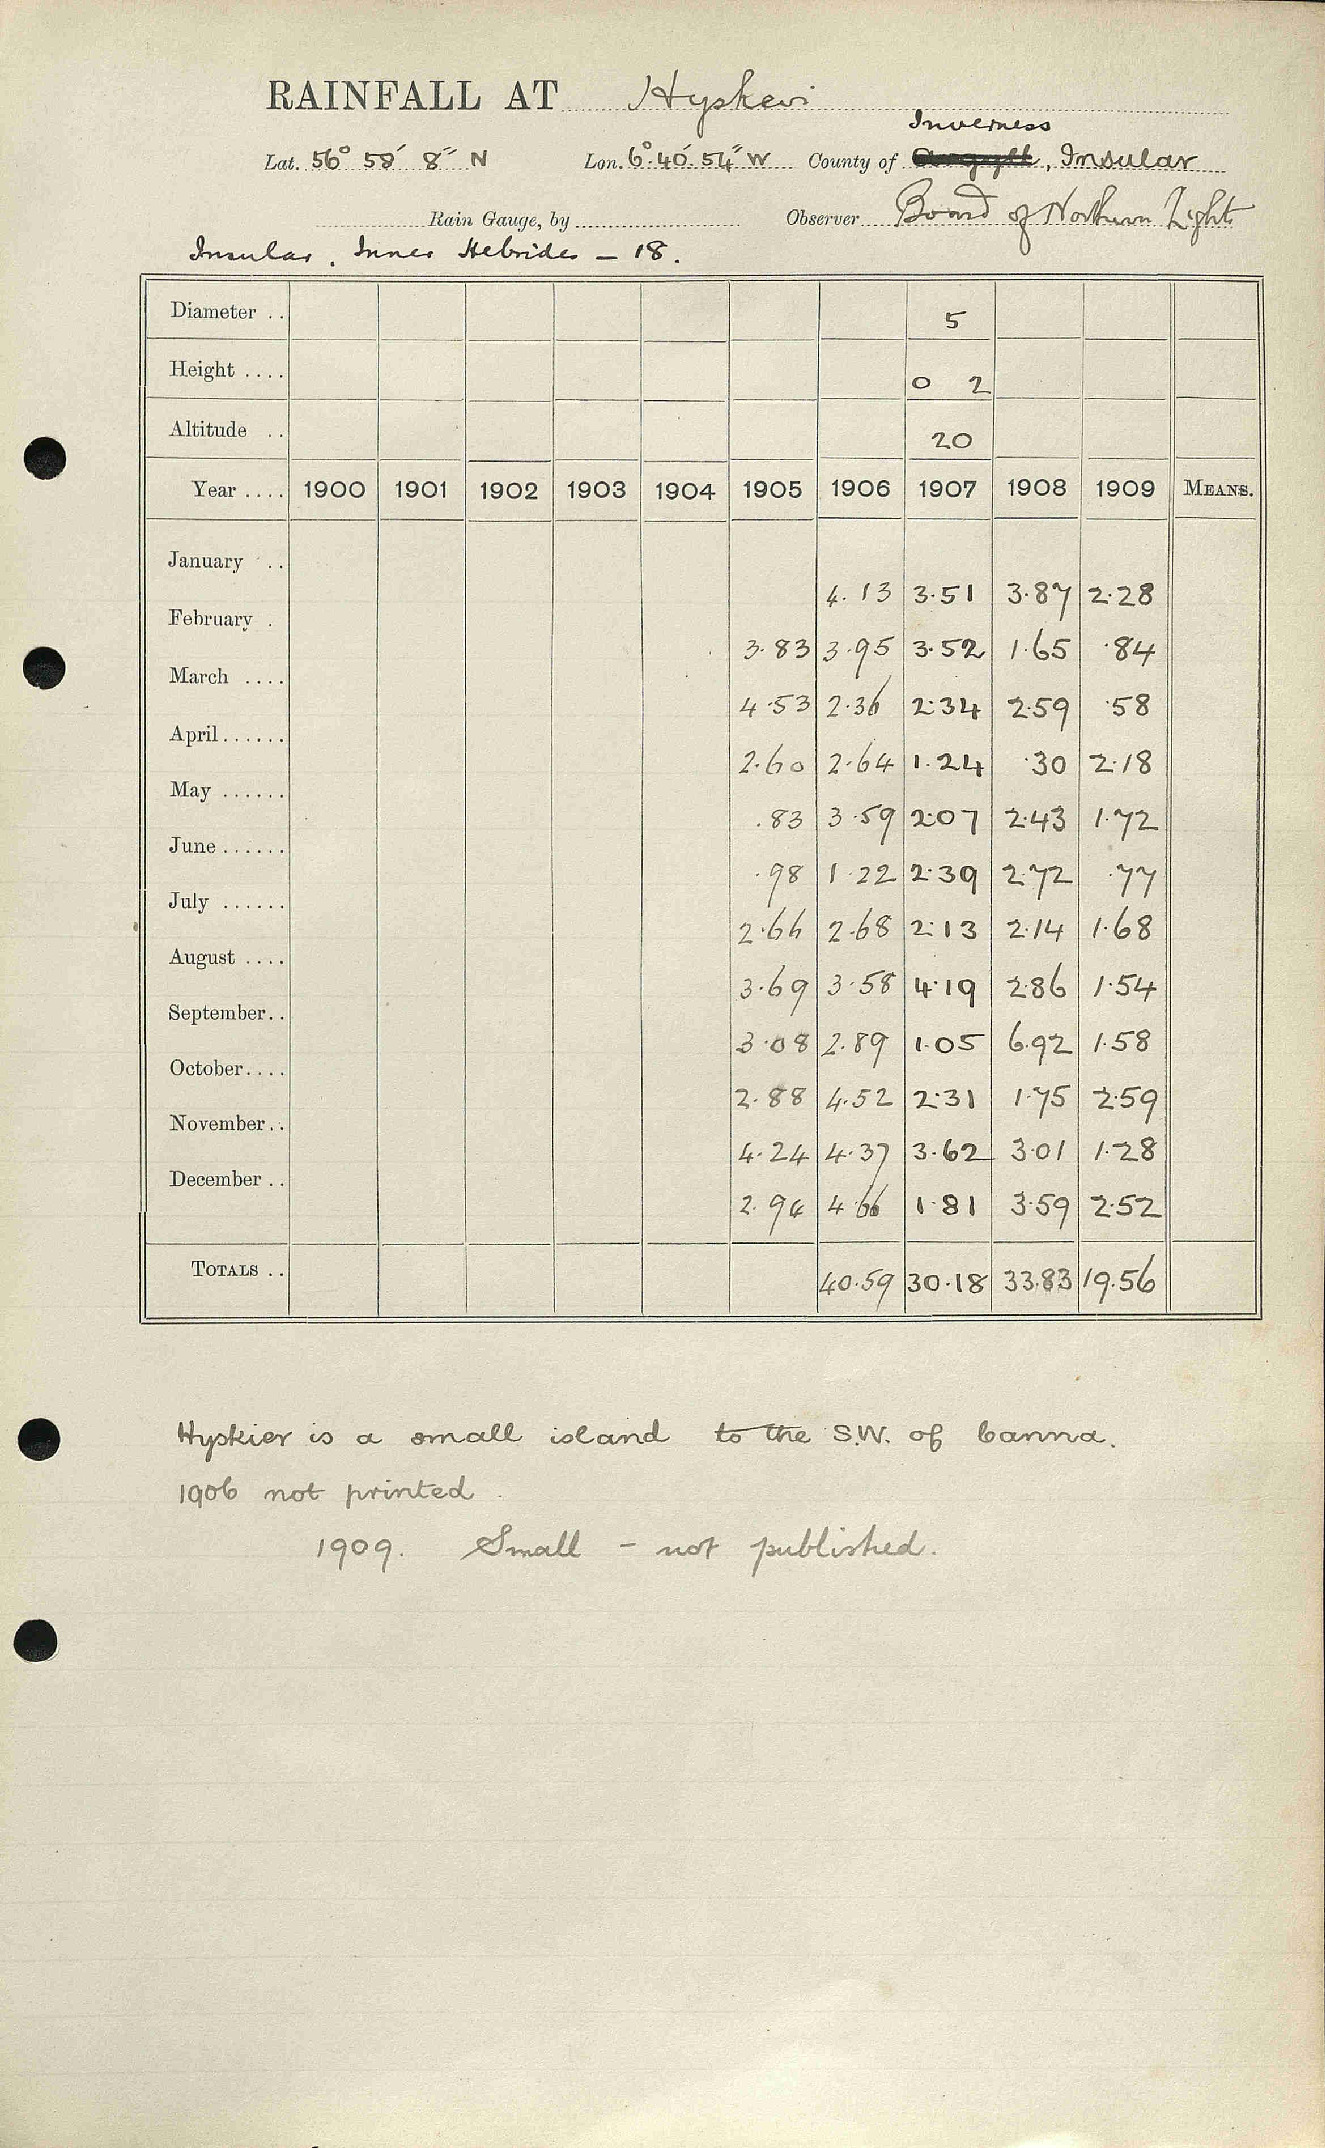 RAINFALL AT Hyskeir
Inverness
Lat. 56° 58′ 8″ N Lon. 6° 40′ 54″ W County of Argyll, Insular
Rain Gauge, by Observer Board of Northern Lights
Insular, Inner Hebrides – 18.
Diameter .. 5
Height .... 0 2
Altitude .. 20
Year .... 1900 1901 1902 1903 1904 1905 1906 1907 1908 1909 MEANS.
January .. 4.13 3.51 3.87 2.28
February . 3.83 3.95 3.52 1.65 .84
March .... 4.53 2.36 2.34 2.59 .58
April...... 2.60 2.64 1.24 .30 2.18
May ...... .83 3.59 2.07 2.43 1.72
June ...... .98 1.22 2.39 2.72 .77
July ...... 2.66 2.68 2.13 2.14 1.68
August .... 3.69 3.58 4.19 2.86 1.54
September.. 3.08 2.89 1.05 6.92 1.58
October.... 2.88 4.52 2.31 1.75 2.59
November.. 4.24 4.37 3.62 3.01 1.28
December .. 2.94 4.66 1.81 3.59 2.52
TOTALS .. 40.59 30.18 33.83 19.56
Hyskier is a small island to the S.W. of Canna.
1906 not printed
1909. Small – not published.